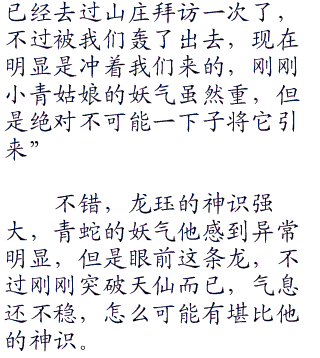 已经去过山庄拜访一次了，
不过被我们轰了出去，现在
明显是冲着我们来的，刚刚
小青姑娘的妖气虽然重，但
是绝对不可能一下子将它引
来”
不错，龙珏的神识强
大，青蛇的妖气他感到异常
明显，但是眼前这条龙，不
过刚刚突破天仙而已，气息
还不稳，怎么可能有堪比他
的神识。